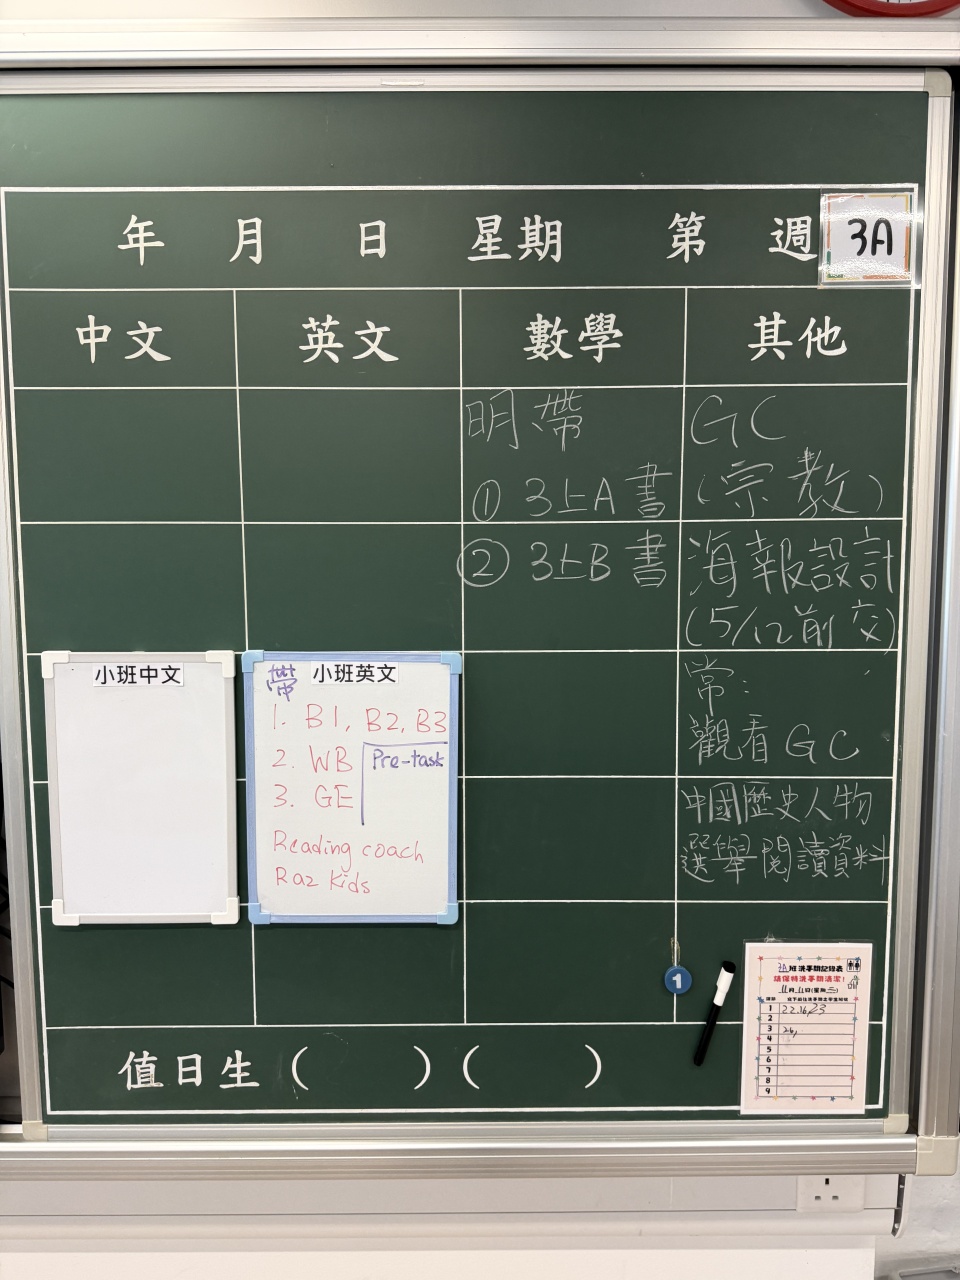 年 月 日 星期 第 週 3A
中文 英文 數學 其他
明帶
① 3上A 書
② 3上B 書
GC
(宗教)
海報設計
(5/12前交)
常:
觀看 GC
中國歷史人物
選舉閱讀資料
小班中文
小班英文
帶
1. B1, B2, B3
2. WB
Pre-task
3. GE
Reading coach
Raz Kids
1
3A班洗手間記錄表
請保持洗手間清潔!
11月11日(星期二)
1 22.16,23
2
3 26,
4
5
6
7
8
9
值日生( )( )